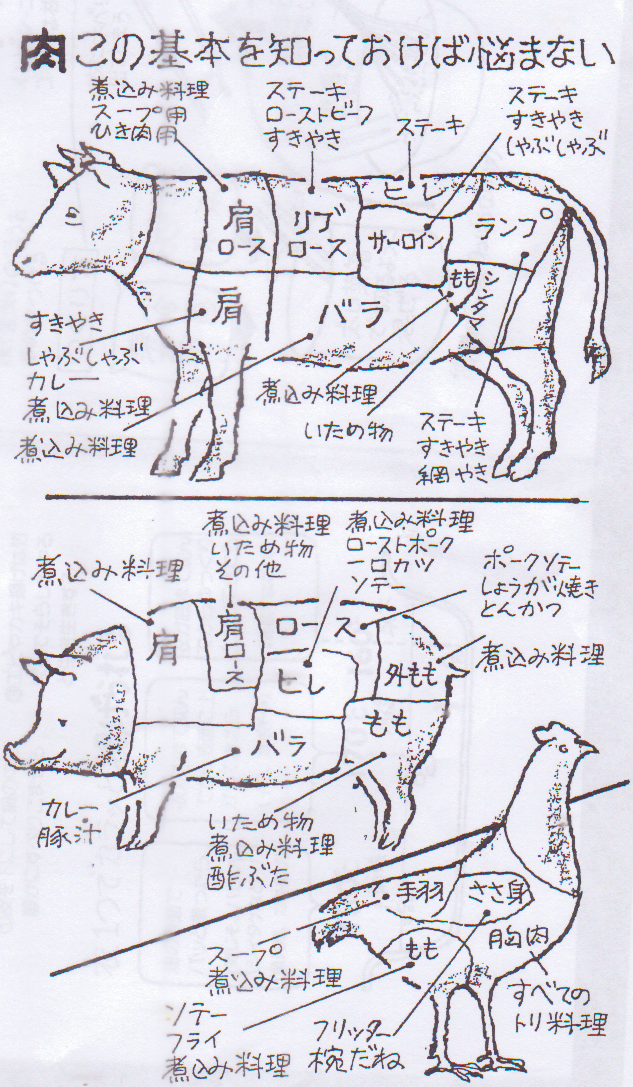 肉この基本を知っておけば悩まない
煮込み料理
スープ用
ひき肉用
ステーキ
ローストビーフ
すきやき
ステーキ
ステーキ
すきやき
しゃぶしゃぶ
肩
ロース
リブ
ロース
ヒレ
サーロイン
ランプ
肩
バラ
もも
シンタマ
すきやき
しゃぶしゃぶ
カレー
煮込み料理
煮込み料理
煮込み料理
いため物
ステーキ
すきやき
網やき
煮込み料理
煮込み料理
いため物
その他
煮込み料理
ローストポーク
一口カツ
ソテー
ポークソテー
しょうが焼き
とんかつ
煮込み料理
肩
肩ロース
ロース
ヒレ
外もも
もも
バラ
カレー
豚汁
いため物
煮込み料理
酢ぶた
手羽
ささ身
胸肉
もも
スープ
煮込み料理
ソテー
フライ
煮込み料理
フリッター
椀だね
すべての
トリ料理